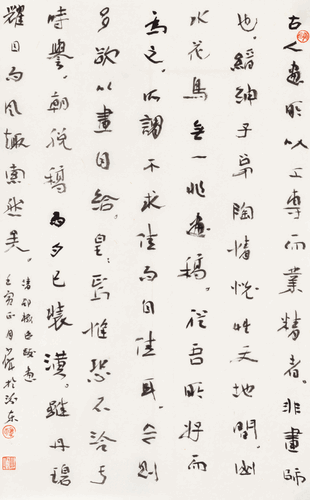 古人畫所以工專而業精者。非畫師
也。縉紳子弟陶情悅性天地間山
水花鳥無一非畫稿。從吾所好而
為之。所謂不求佳而自佳耳。今則
多欲以畫自給。皇皇焉惟恐不洽于
時譽。朝脫稿而夕已裝潢。雖丹碧
耀目而風趣索然矣。
清邵梅臣畫
壬寅正月於洛東